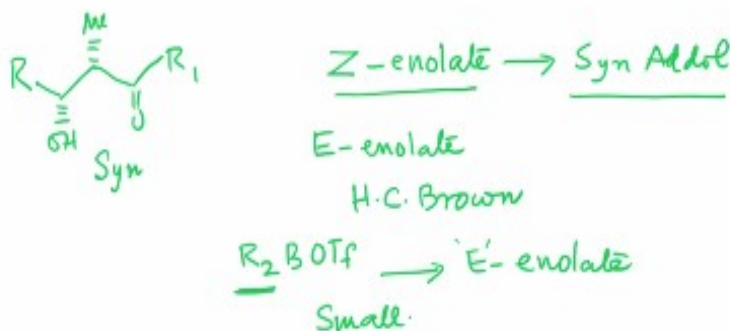 Me
R
R1
OH
O
Syn
Z-enolate → Syn Addol
E-enolate
H.C. Brown
R2 BOTf → 'E'-enolate
Small.